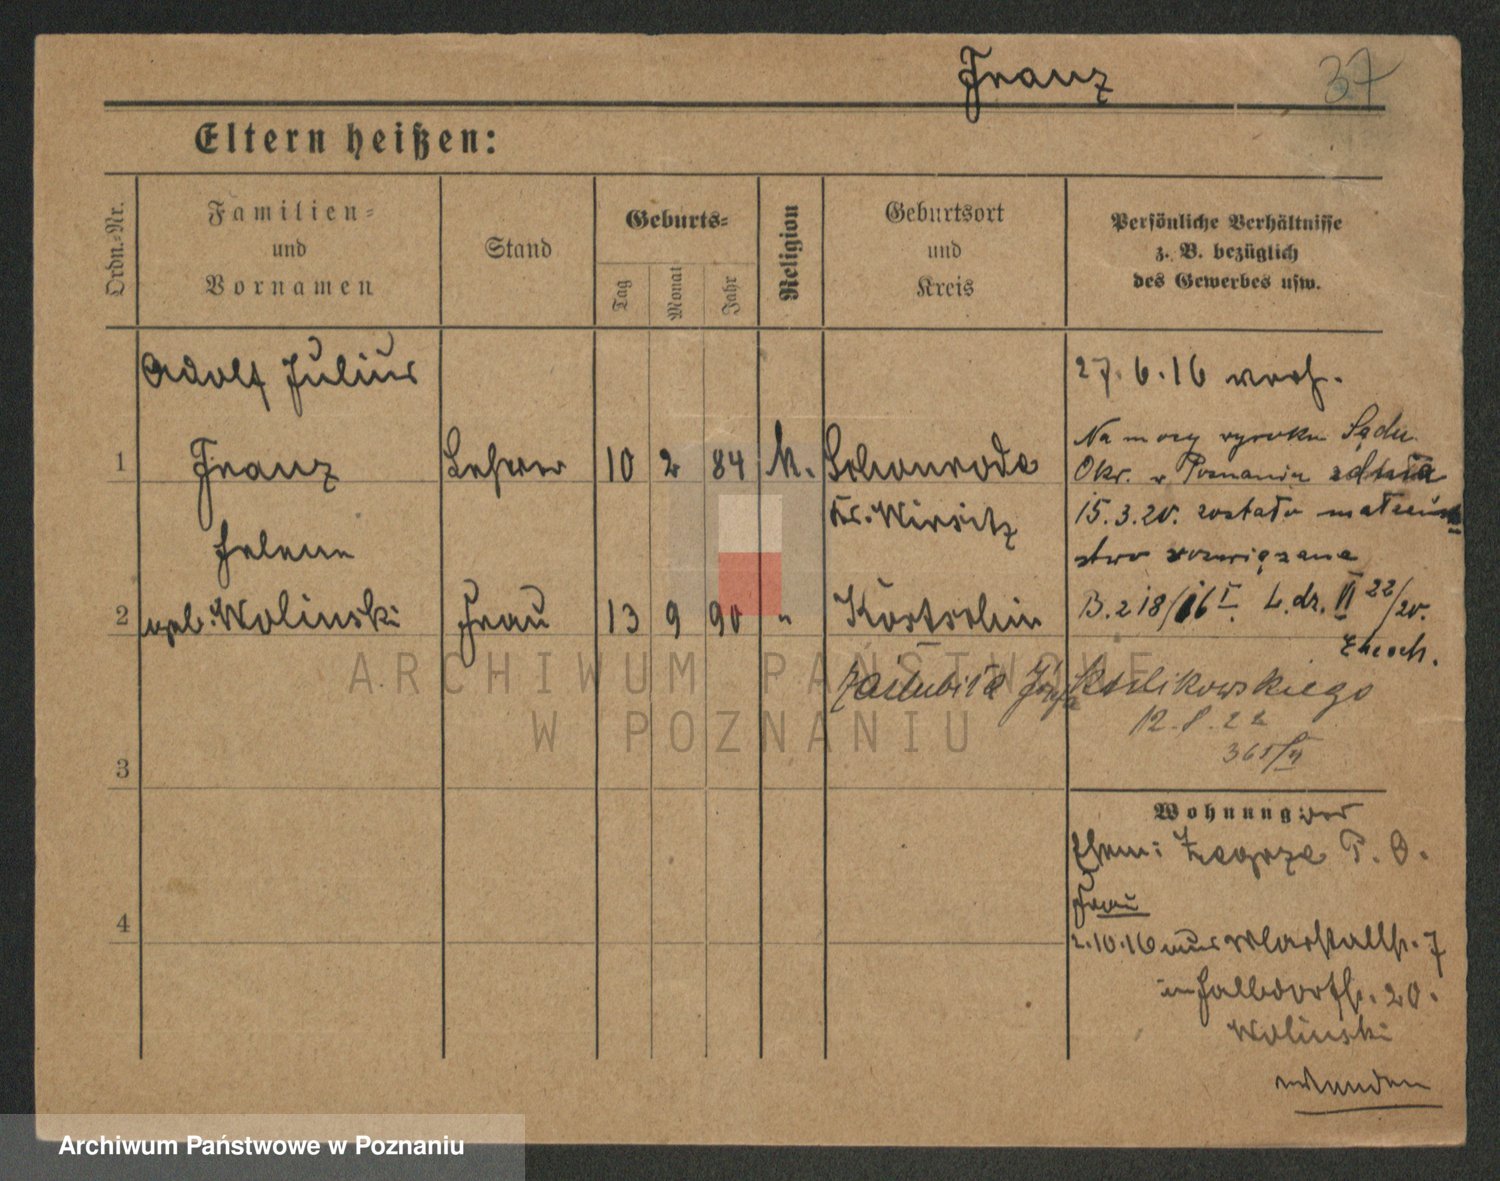 Franz 37
Eltern heißen:
Ordn.-Nr.
Familien-
und
Vornamen
Stand
Geburts-
Tag
Monat
Jahr
Religion
Geburtsort
und
Kreis
Persönliche Verhältnisse
z. B. bezüglich
des Gewerbes usw.
Adolf Julius
27.6.16 verh.
1 Franz Lehrer 10 2 84 k. Schönrode
Kr. Wirsitz
Na mocy wyroku Sądu
Okr. w Poznaniu z dnia
15.3.20. zostało małżeń
stwo rozwiązane
B.218/16 I. L.dz. VI 22/20.
Helene
2 geb. Wolinski Frau 13 9 90 " Kostschin
zaślubiła Józefa Kulikowskiego
12.8.22
3
Wohnung der
Ehem: P. O.
Frau
4
2.10.16 aus Marstallstr. 7
in Halbdorfstr. 20.
Wolinski
ARCHIWUM PAŃSTWOWE
W POZNANIU
Archiwum Państwowe w Poznaniu